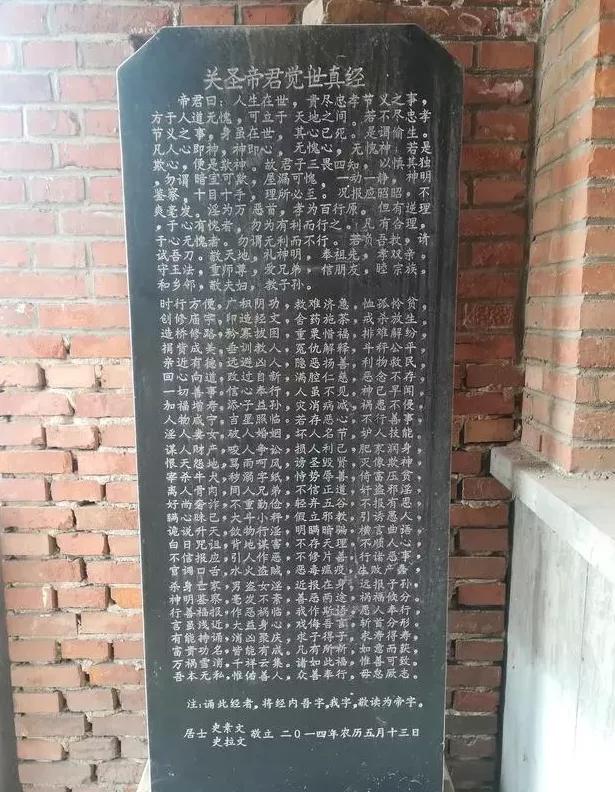 关圣帝君觉世真经
帝君曰：人生在世，贵尽忠孝节义之事，
方于人道无愧，可立于天地之间。若不尽忠孝
节义之事，身虽在世，其心已死。是谓偷生。
凡人心即神，神即心，无愧心，无愧神。若是
欺心，便是欺神。故君子三畏四知，以慎其独
，勿谓暗室可欺，屋漏可愧，一动一静，神明
鉴察，十目十手，理所必至。况报应昭昭，不
爽毫发。淫为万恶首，孝为百行原。但有逆理
，于心有愧者，勿谓有利而行之。凡有合理，
于心无愧者，勿谓无利而不行。若负吾教，请
试吾刀。敬天地，礼神明，奉祖先，孝双亲，
守王法，重师尊，爱兄弟，信朋友，睦宗族，
和乡邻，敬夫妇，教子孙。
时行方便 广积阴功 救难济急 恤孤怜贫
创修庙宇 印造经文 舍药施茶 戒杀放生
造桥修路 矜寡拔困 重粟惜福 排难解纷
捐赀成美 垂训教人 冤仇解释 斗秤公平
亲近有德 远避凶人 隐恶扬善 利物救民
回心向道 改过自新 满腔仁慈 恶念不存
一切善事 信心奉行 人虽不见 神已早闻
加福增寿 添子益孙 灾消病减 祸患不侵
人物咸宁 吉星照临 若存恶心 不行善事
淫人妻女 破人婚姻 坏人名节 妒人技能
谋人财产 唆人争讼 损人利己 肥家润身
恨天怨地 骂雨呵风 谤圣毁贤 灭像欺神
宰杀牛犬 秽溺字纸 恃势辱善 倚富压贫
离人骨肉 间人兄弟 不信正道 奸盗邪淫
好尚奢诈 不重勤俭 轻弃五谷 不报有恩
瞒心昧己 大斗小秤 假立邪教 引诱愚人
诡说升天 敛物行淫 明瞒暗骗 横言曲语
白日咒诅 背地谋害 不存天理 不顺人心
不信报应 引人作恶 不修片善 行诸恶事
官词口舌 水火盗贼 恶毒瘟疫 生败产蠹
杀身亡家 男盗女淫 近报在身 远报子孙
神明鉴察 毫发不紊 善恶两途 祸福攸分
行善福报 作恶祸临 我作斯语 愿人奉行
言虽浅近 大益身心 戏侮吾言 斩首分形
有能持诵 消凶聚庆 求子得子 求寿得寿
富贵功名 皆能有成 凡有所祈 如意而获
万祸雪消 千祥云集 诸如此福 惟善可致
吾本无私 惟佑善人 众善奉行 毋怠厥志
注：诵此经者，将经内吾字，我字，敬读为帝字。
居士 史素文 史拉文 敬立 二〇一四年农历五月十三日